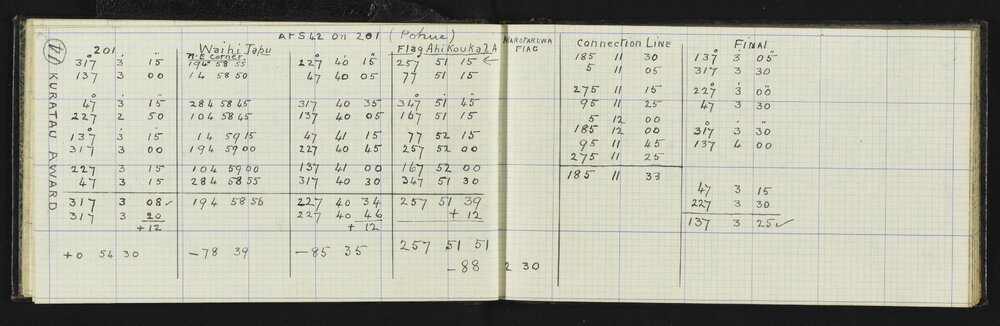 At S 42 on 201 (Pohue)
201 Waihi Tapu Flag Ahi Kouka 2A FLAG Connection Line FINAL
N.E Corner
317° 3' 15" 194° 58 55 227 40 15 257 51 15 185 11 30 137° 3' 05"
137 3 00 14 58 50 47 40 05 77 51 15 5 11 05 317 3 30
275 11 15 227 3 00
47 3 15 284 58 45 317 40 35 347 51 45 95 11 25 47 3 30
227 2 50 104 58 45 137 40 05 167 51 15 5 12 00
185 12 00 317 3 30
137 3 15 14 59 15 47 41 15 77 52 15 95 11 45 137 4 00
317 3 00 194 59 00 227 40 45 257 52 00 275 11 25
227 3 15 104 59 00 137 41 00 167 52 00 185 11 33
47 3 15 284 58 55 317 40 30 347 51 30 47 3 15
227 3 30
317 3 08 ✓ 194 58 56 227 40 34 257 51 39 137 3 25 ✓
317 3 20 227 40 46 + 12
+12 + 12
257 51 51
+0 54 30 -78 39 -85 35 -88 2 30
14
KURATAU AWARD